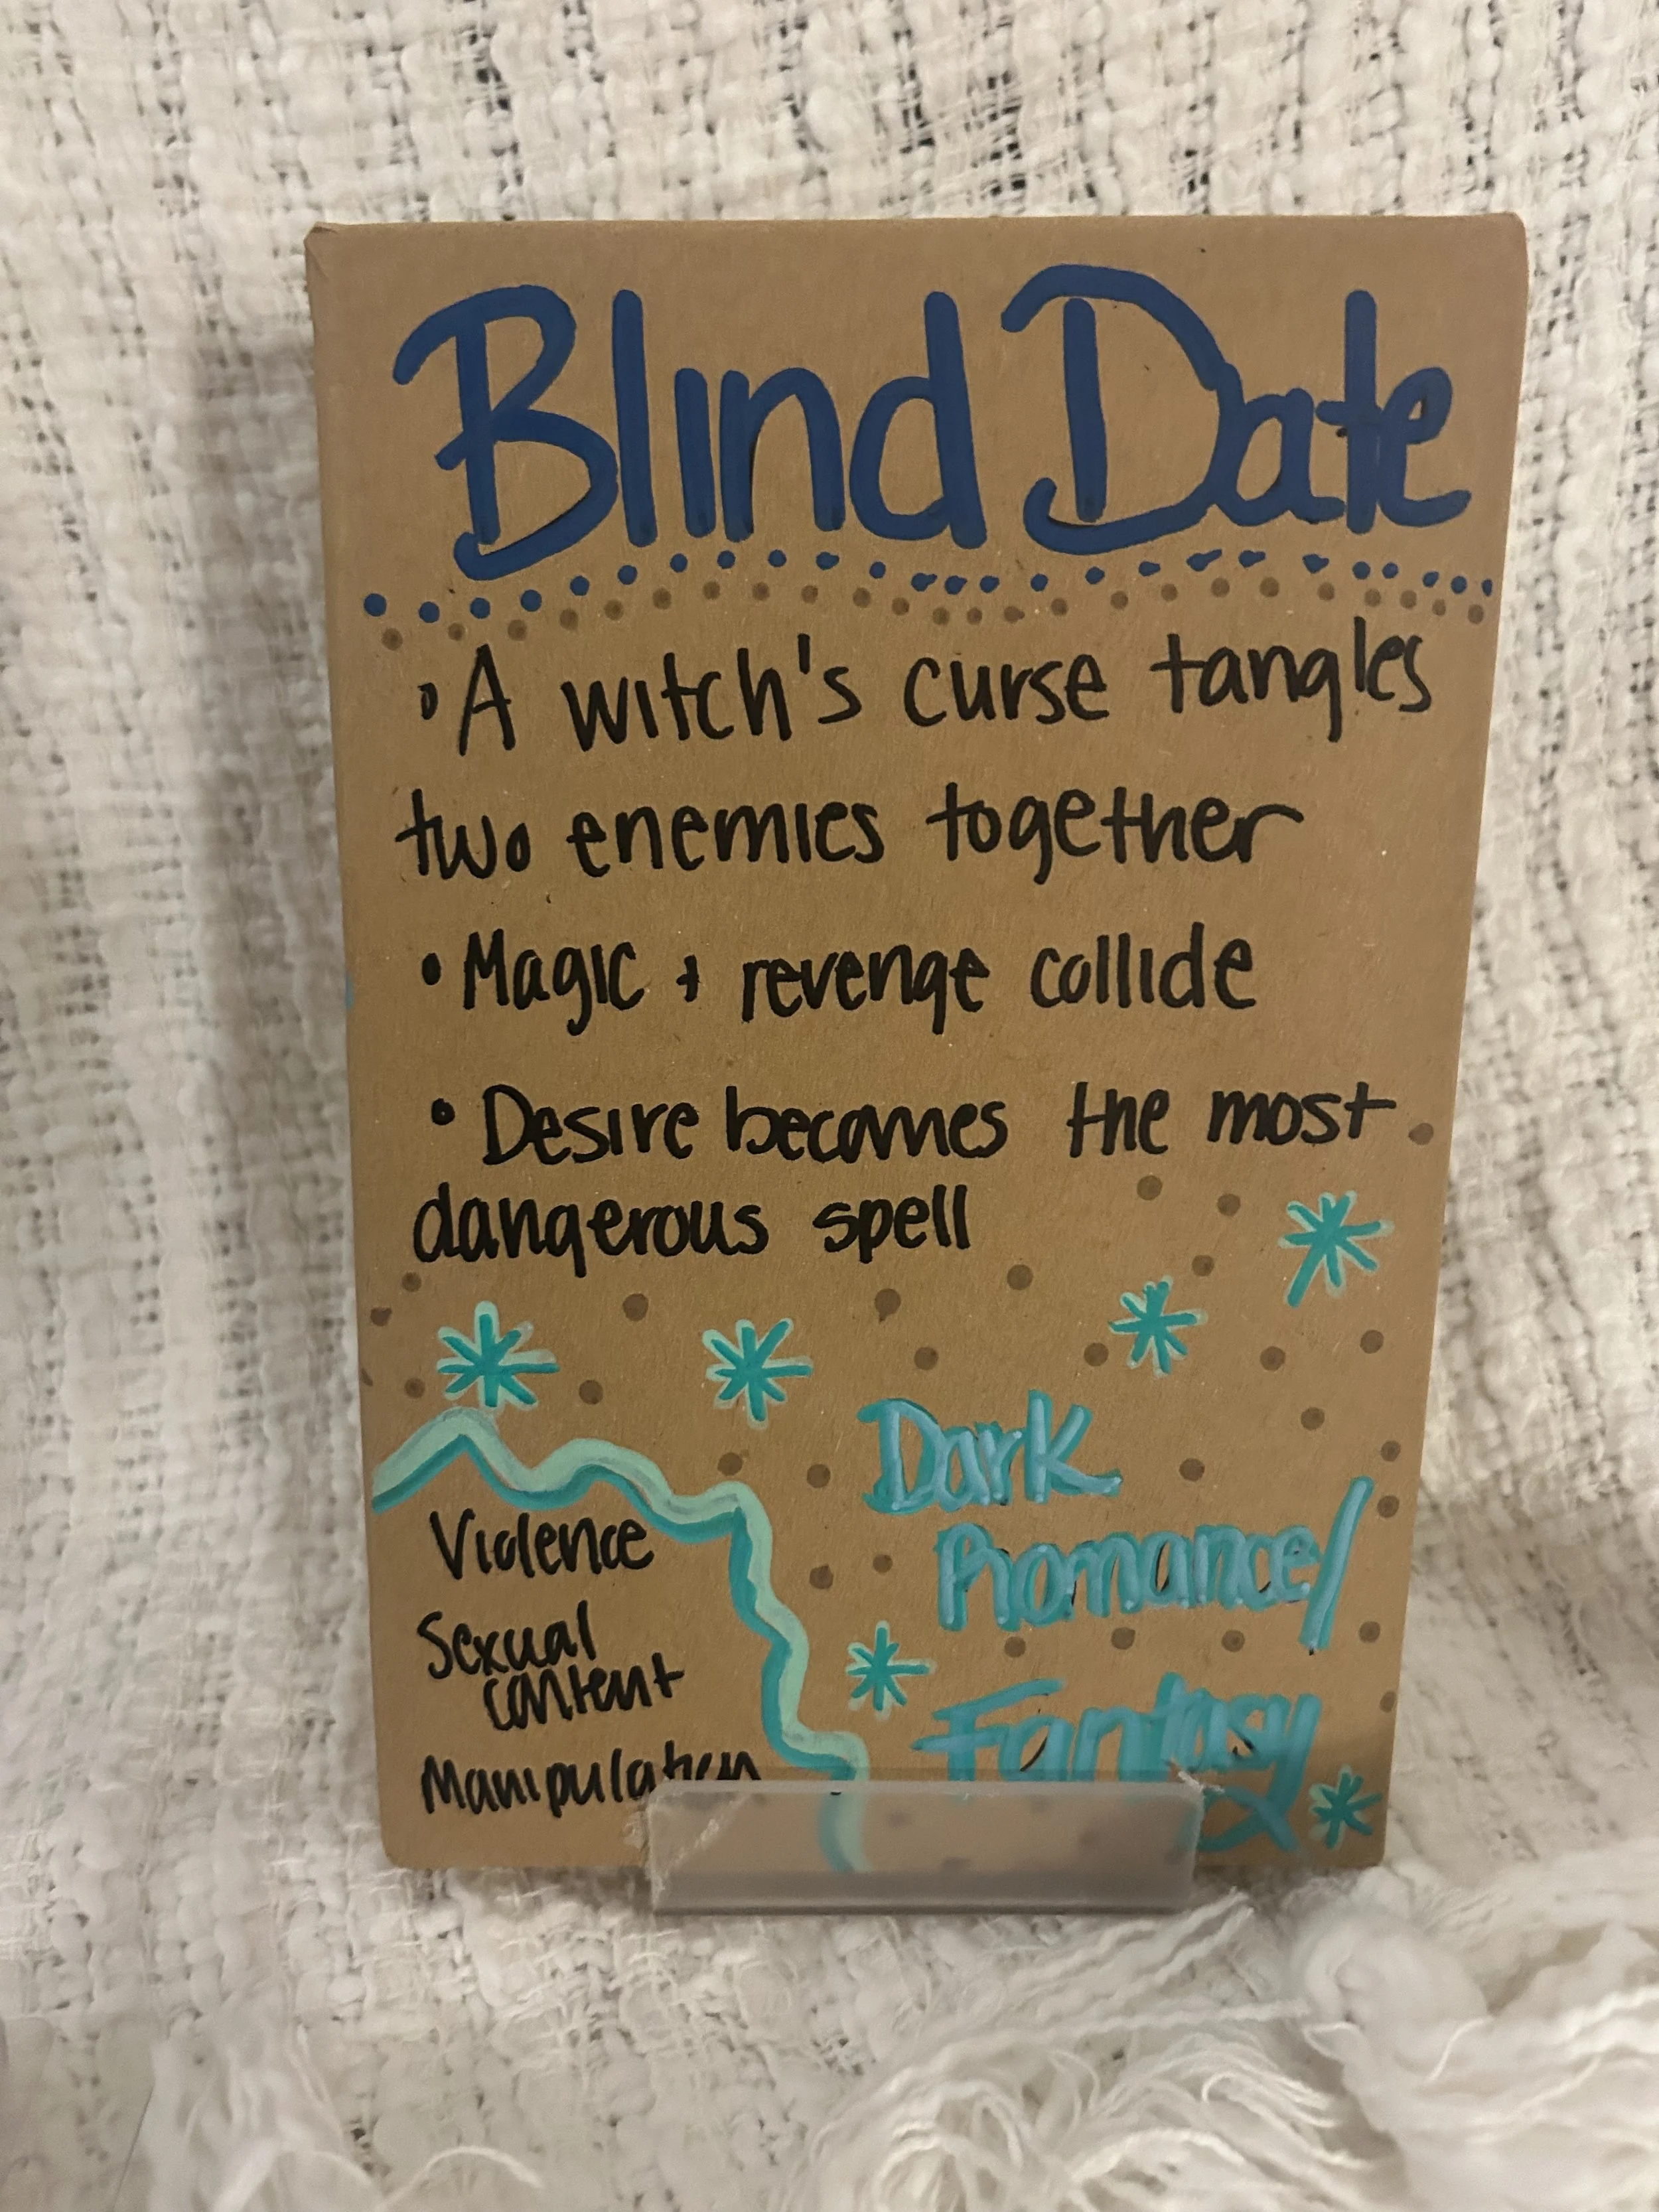 Blind Date
• A witch's curse tangles
two enemies together
• Magic + revenge collide
• Desire becomes the most
dangerous spell
Dark
Romance/
Fantasy
Violence
Sexual
content
Manipulation